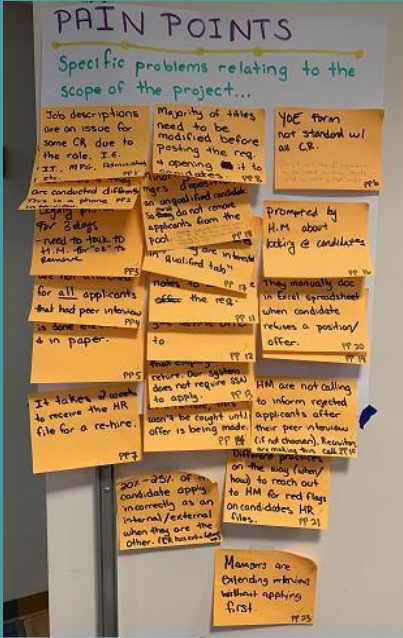 PAIN POINTS
Specific problems relating to the
scope of the project...
Job descriptions
are an issue for
some CR due to
the role. I.E.
IT, MFG,
etc.
PP1
are conducted
This is a phone
PP2
for 3 days
- need to talk to
H.M. for "ok" to
remove
PP3
for all applicants
that had peer interview
PP4
& in paper.
PP5
It takes 2 weeks
to receive the HR
file for a re-hire.
PP7
Majority of titles
need to be
modified before
posting the req.
& opening it to
candidates.
PP8
an unqualified candidate
do not remove
applicants from the
pool.
PP18
Qualified tab"
PP17
notes to
the req.
PP11
to.
PP12
rehire. Our system
does not require SSN
to apply.
PP13
won't be caught until
offer is being made.
PP14
20% - 25% of
candidate apply
incorrectly as an
internal/external
when they are the
other.
YOE Form
not standard w/
all CR.
PP6
Prompted by
H.M about
looking @ candidates
PP16
They manually doc
in Excel spreadsheet
when candidate
refuses a position/
offer.
PP20
PP19
HM are not calling
to inform rejected
applicants after
their peer interview
(if not chosen). Recruiters
are making this call
PP10
Different practices
on the way (when/
how) to reach out
to HM for red flags
on candidates HR
files.
PP21
Managers are
Extending interviews
without applying
first.
PP23